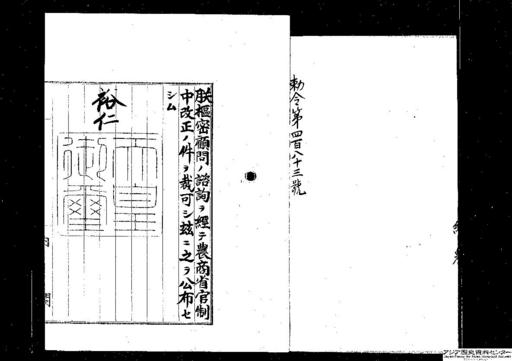 勅令第四百八十三號
朕樞密顧問ノ諮詢ヲ經テ農商省官制
中改正ノ件ヲ裁可シ玆ニ之ヲ公布セ
シム
裕仁
天皇
御璽
内閣
アジア歴史資料センター